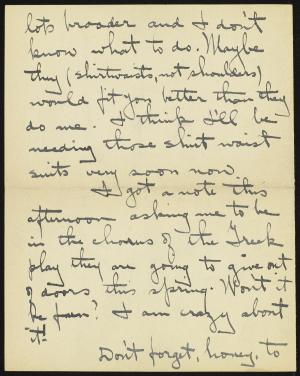 lots broader and I don't
know what to do. Maybe
they (shirtwaists, not shoulders)
would fit you better than they
do me. I think I'll be
needing those shirt waist
suits very soon now.
I got a note this
afternoon asking me to be
in the chorus of the Greek
play they are going to give out
o' doors this spring. Won't it
be fun? I am crazy about
it!
Don't forget, honey, to